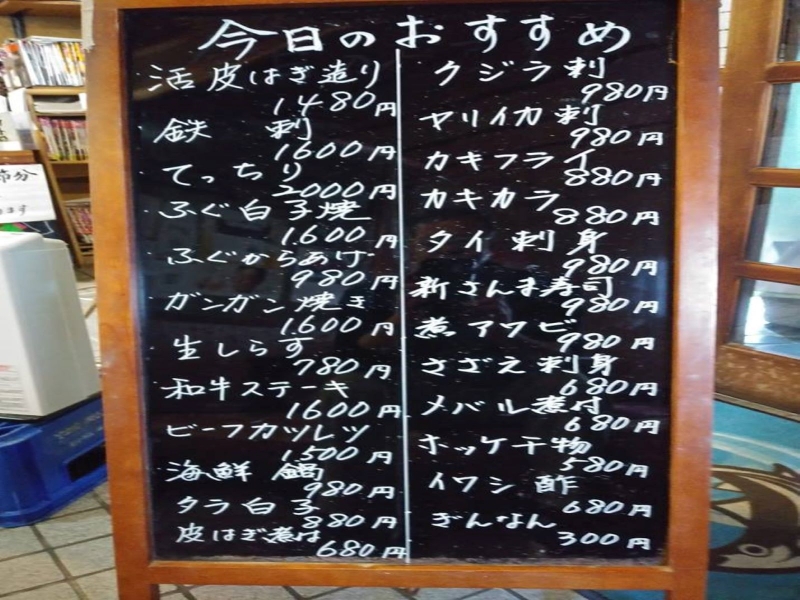 今日のおすすめ
活皮はぎ造り
1480円
鉄刺
1600円
てっちり
2000円
ふぐ白子焼
1.600円
ふぐからあげ
980円
ガンガン焼き
1.600円
生しらす
780円
和牛ステーキ
1600円
ビーフカツレツ
1.500円
海鮮鍋
980円
タラ白子
880円
皮はぎ煮付
680円
クジラ刺
980円
ヤリイカ刺
980円
カキフライ
880円
カキカラ
880円
タイ刺身
980円
新さんま寿司
980円
煮アワビ
980円
さざえ刺身
680円
メバル煮付
680円
ホッケ干物
580円
イワシ酢
680円
ぎんなん
300円
節分
ます